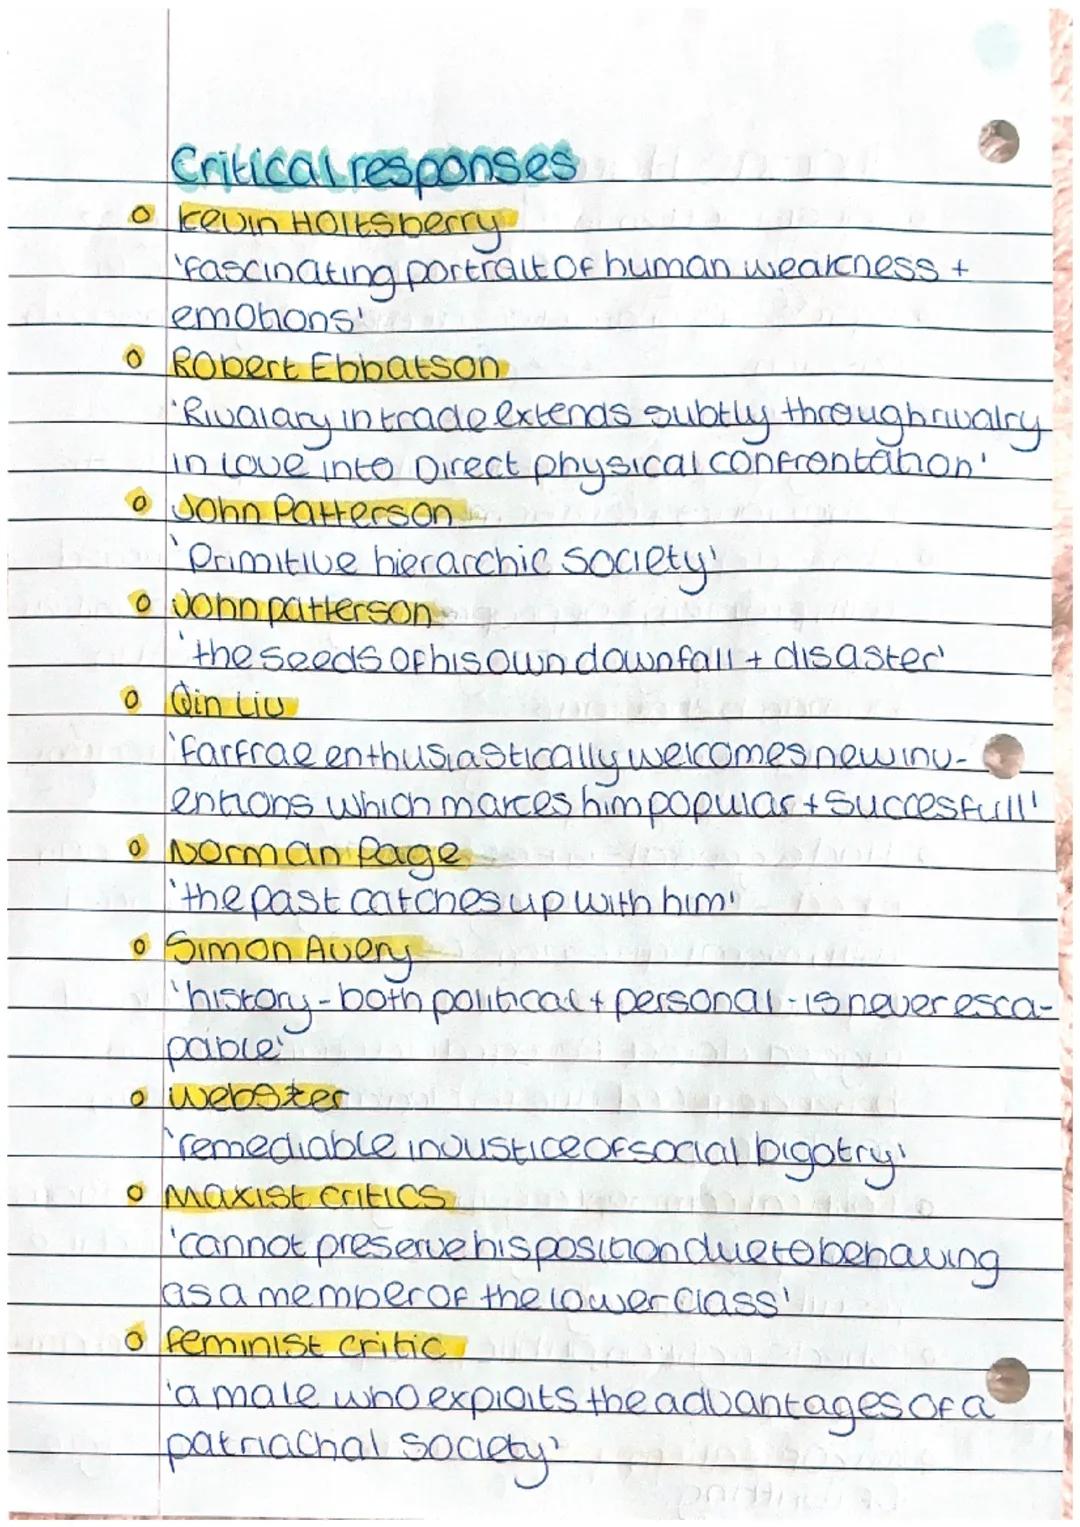 Critical responses
Kevin Holtsberry
'fascinating portrait of human weakness +
emotions'
Robert Ebbatson
'Rivalary in trade extends subtly through rivalry
in love into Direct physical confrontation'
John Patterson
'Primitive hierarchic society'
John patterson
'the seeds of his own downfall + disaster'
Qin Liu
'farfrae enthusiastically welcomes new inv-
entions which makes him popular + succesfull'
Norman Page
'the past catches up with him'
Simon Avery
'history - both political + personal - is never esca-
pable'
Webster
'remediable injustice of social bigotry'
Maxist critics
'cannot preserve his position due to behaving
as a member of the lower class'
feminist critic
'a male who exploits the advantages of a
patriachal society'